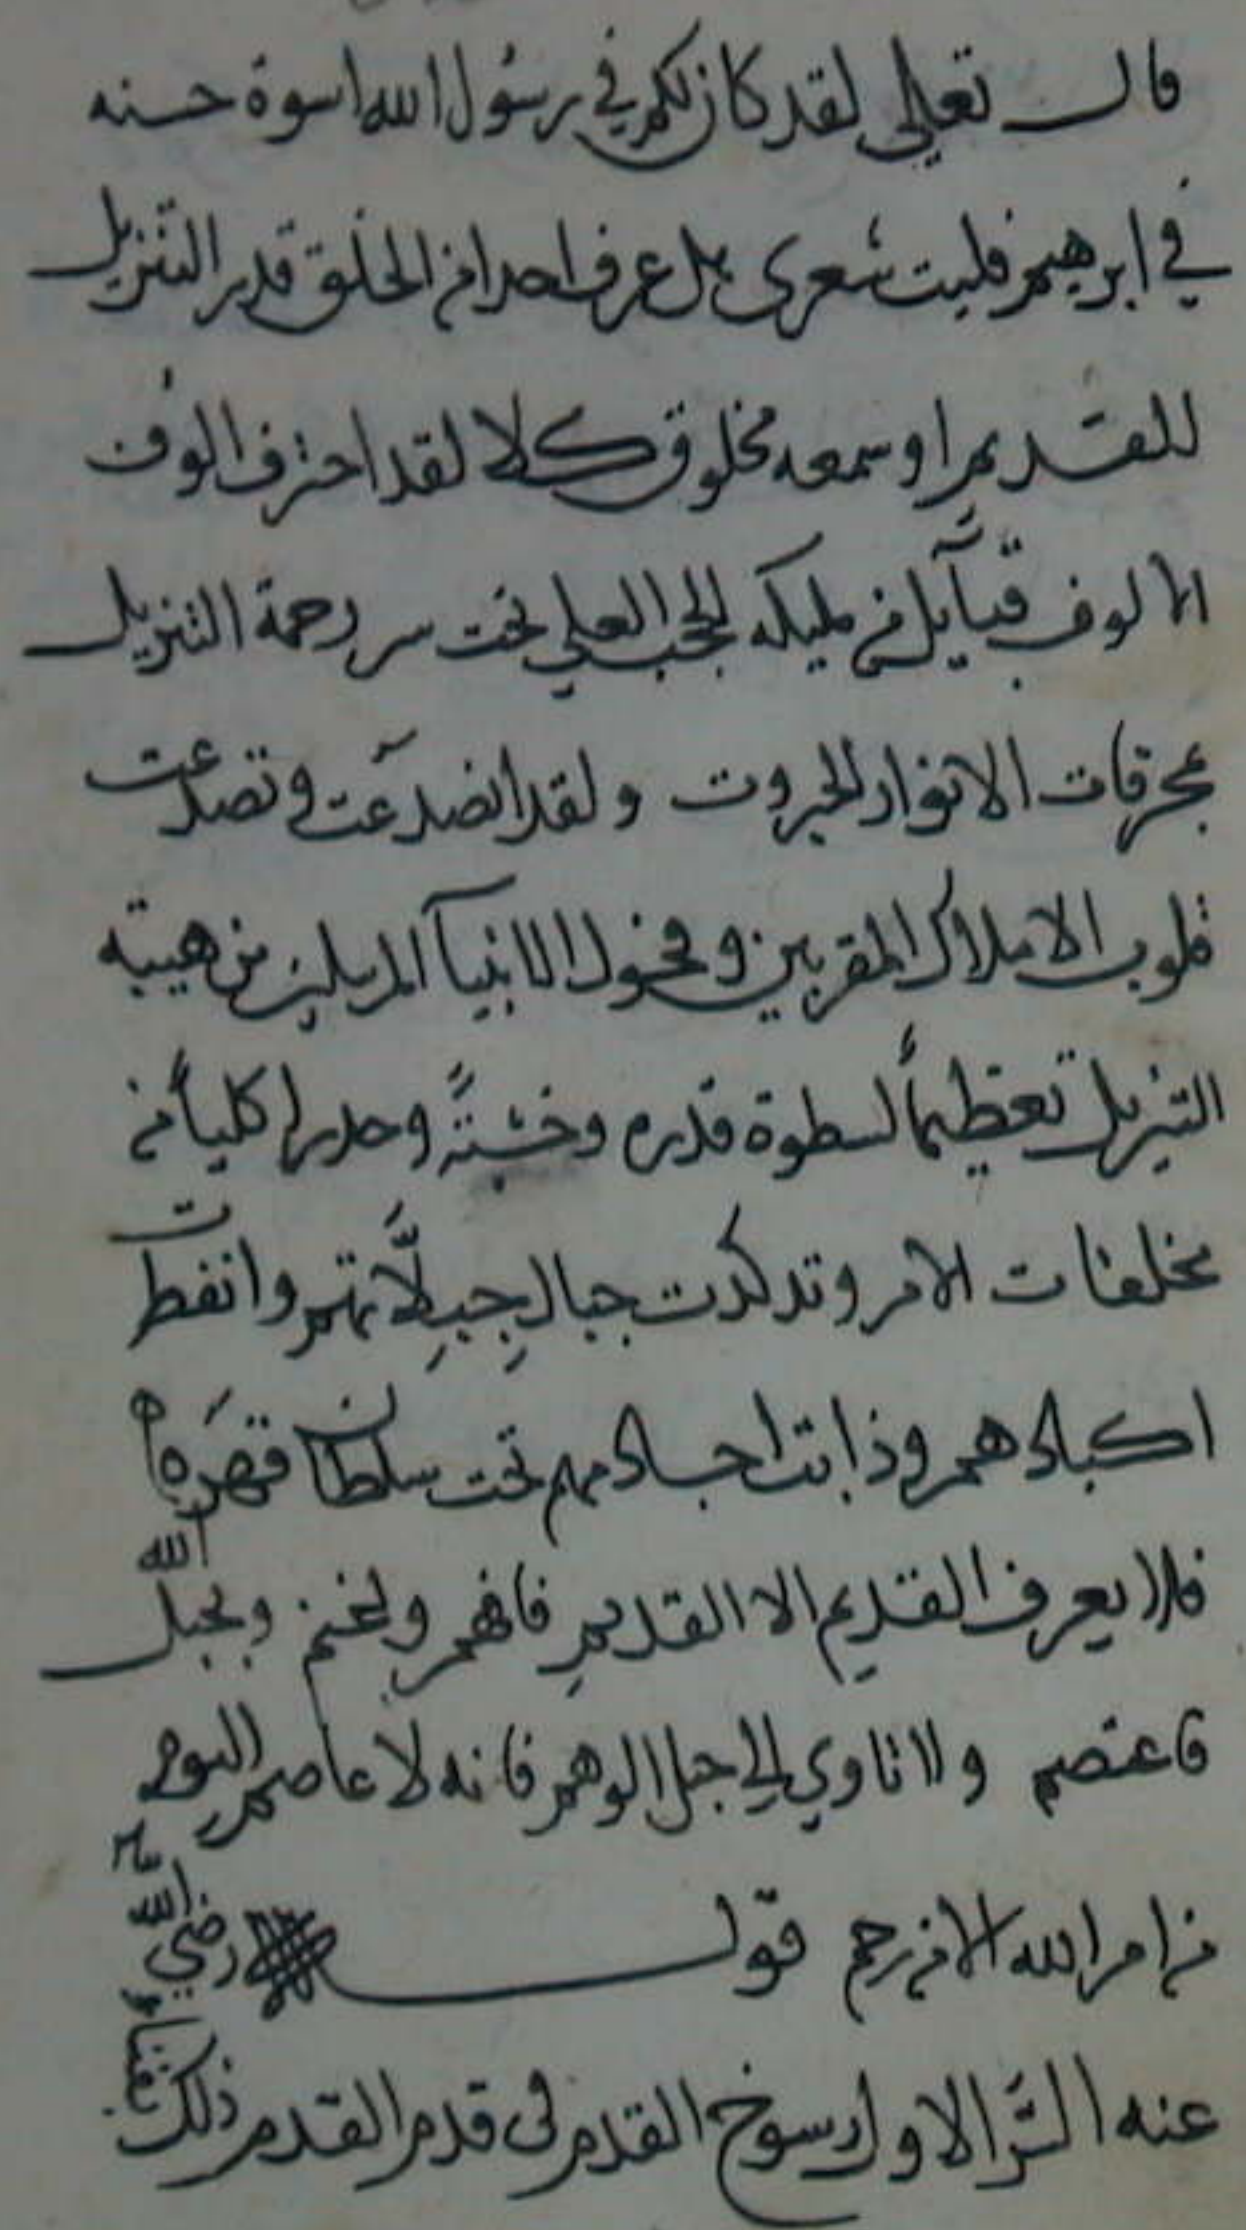 قال تعالى لقد كان لكم في رسول الله اسوة حسنه
في ابرهيم فليت شعرى هل عرف احد من الخلق قدر التنزيل
للقديم او سمعه مخلوق كلا لقد احترف الوف
الالوف قبآيل من مليكه الحجب العلي تحت سر رحمة التنزيل
بمحرقات الانوار الجبروت ولقد انصدعت وتصدعت
قلوب الاملاك المقربين وفحول الانبيآ المرسلين من هيبته
التنزيل تعظيماً لسطوة قدره وخشيةً وحدرا كلياً من
مخلفات الامر وتدكدكت جبال جِبِلَّاتهم وانفطرت
اكبادهم وذابت اجسادهم تحت سلطان قهره
فلا يعرف القديم الا القديم فافهم وبحبل الله
فاعتصم ولا تاوي الى جبل الوهم فانه لا عاصم اليوم
من امر الله الا من رحم قول رضي الله
عنه السر الاول رسوخ القدم في قدم القدم ذلك